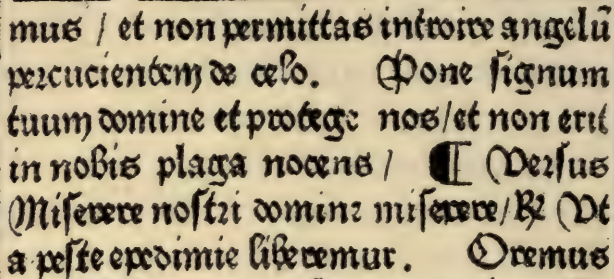 mus / et non permittas introire angelū
percucientem de celo. Pone signum
tuum domine et protege nos/et non erit
in nobis plaga nocens / ¶ Versus
Miserere nostri domine miserere/ ℟ Vt
a peste epedimie liberemur. Oremus